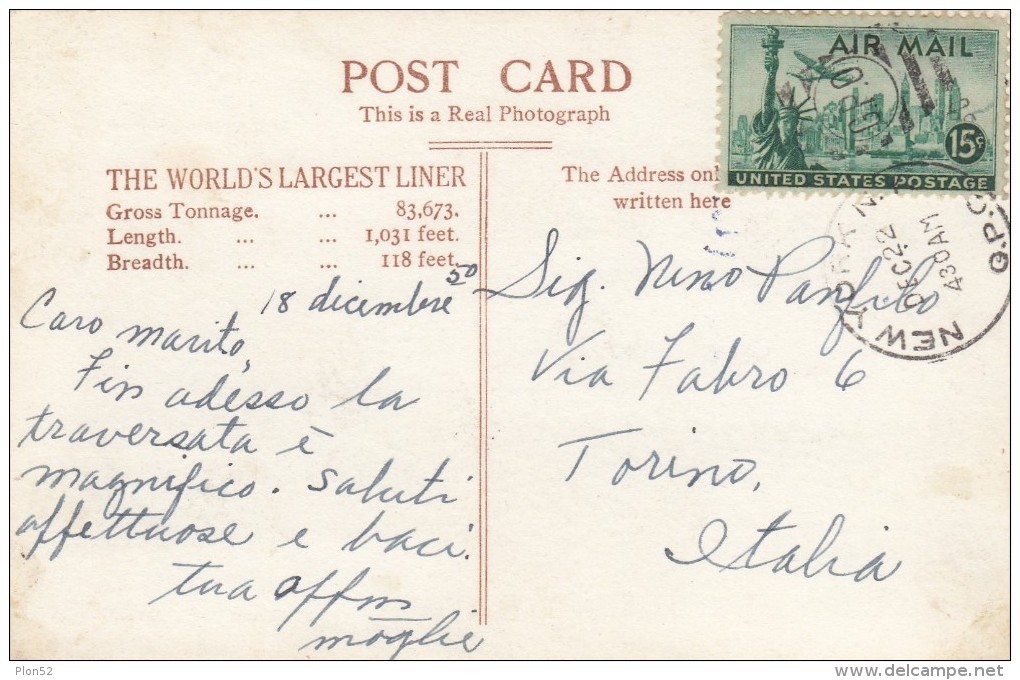 POST CARD
This is a Real Photograph
THE WORLD'S LARGEST LINER
Gross Tonnage. ... 83,673.
Length. ... ... 1,031 feet.
Breadth. ... ... 118 feet.
18 dicembre 50
Caro marito,
Fin adesso la
traversata è
magnifico. Saluti
affettuose e baci.
tua affm
moglie
The Address onl
written here
AIR MAIL
15¢
UNITED STATES POSTAGE
NEW YORK
DEC 22
430 AM
G.P.O.
Sig. Nino Panfilo
Via Fabro 6
Torino,
Italia
Plon52
delcampe.net